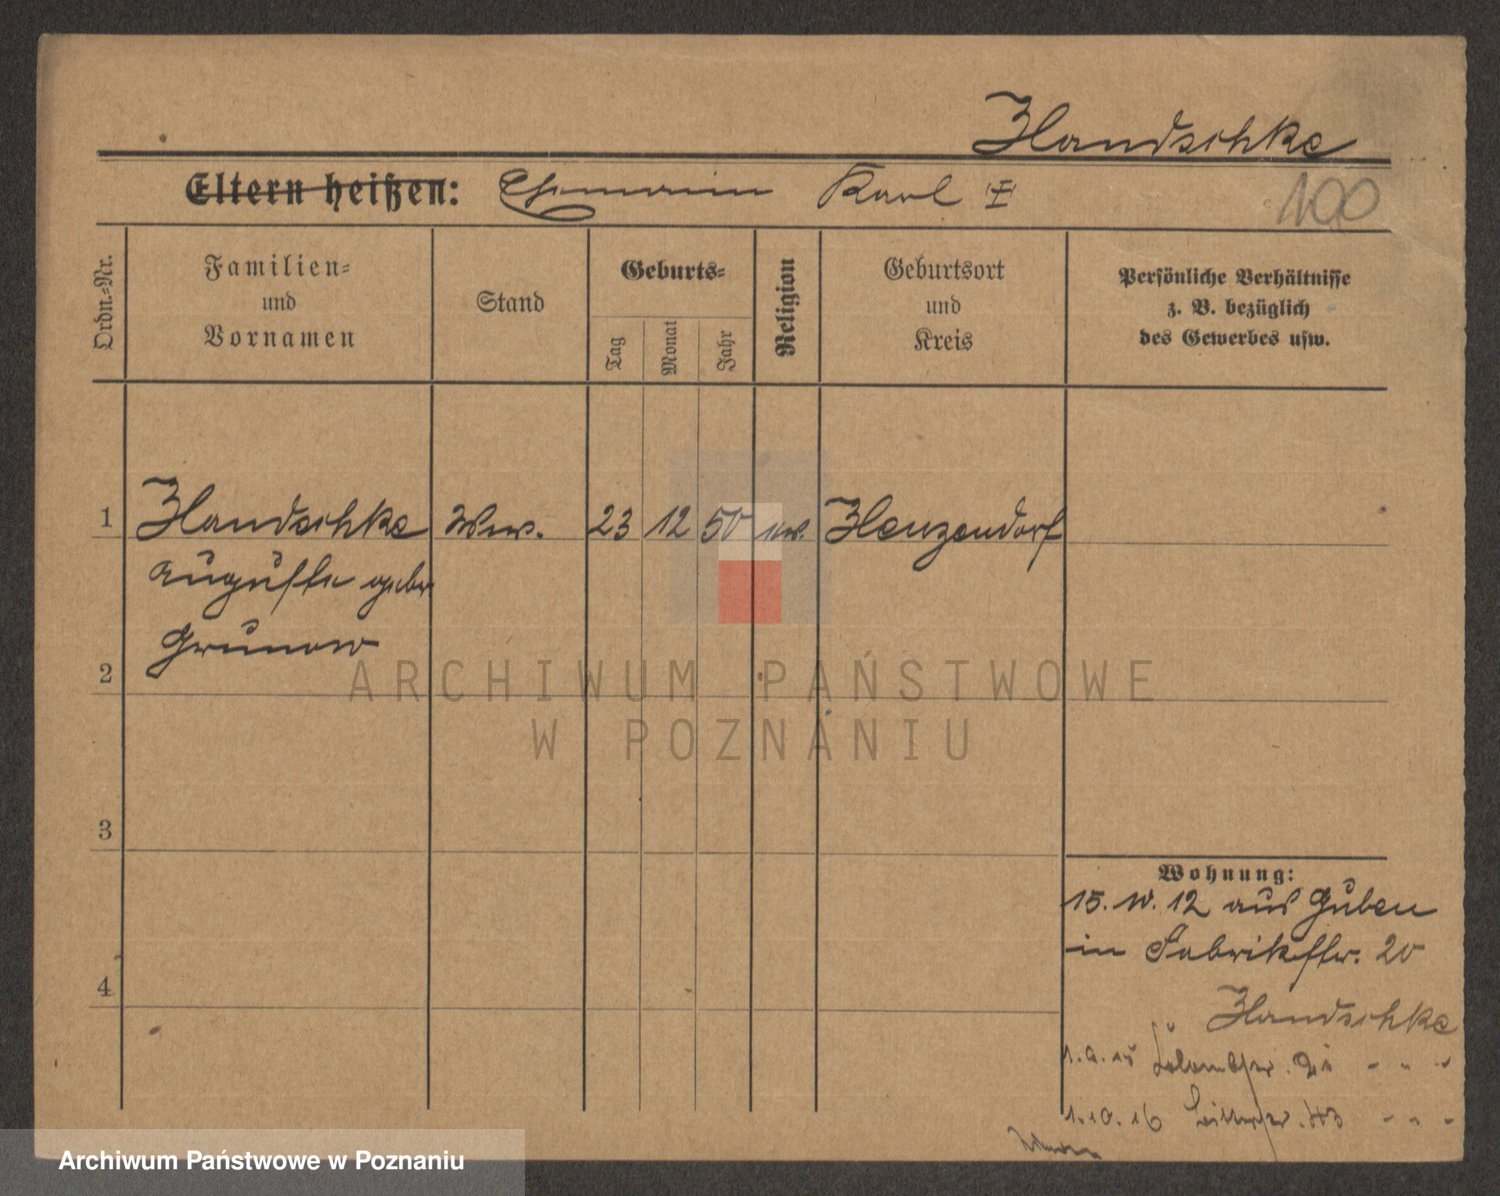 Handschke
Eltern heißen: Ehemann Karl I
100
Ordn.-Nr.
Familien-
und
Vornamen
Stand
Geburts-
Tag
Monat
Jahr
Religion
Geburtsort
und
Kreis
Persönliche Verhältnisse
z. B. bezüglich
des Gewerbes usw.
1 Handschke Wwe. 23 12 50 ev. Henzendorf
Auguste geb.
Grunow
2
3
4
ARCHIWUM PAŃSTWOWE
W POZNANIU
Wohnung:
15. 10. 12 aus Guben
in Fabrikstr. 20
Handschke
1. 10. 16
Archiwum Państwowe w Poznaniu